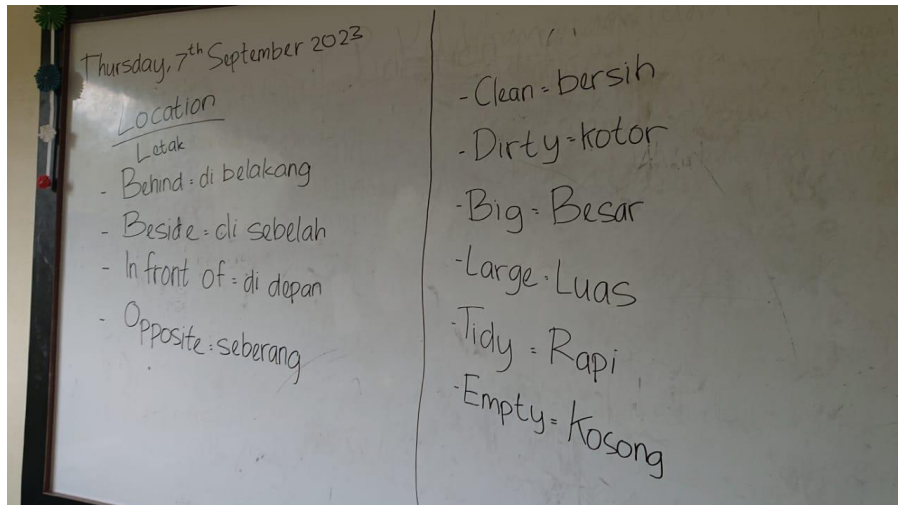 Thursday, 7th September 2023
Location
Letak
- Behind = di belakang
- Beside = di sebelah
- In front of = di depan
- Opposite = seberang
- Clean = bersih
- Dirty = kotor
- Big = Besar
- Large = Luas
- Tidy = Rapi
- Empty = Kosong